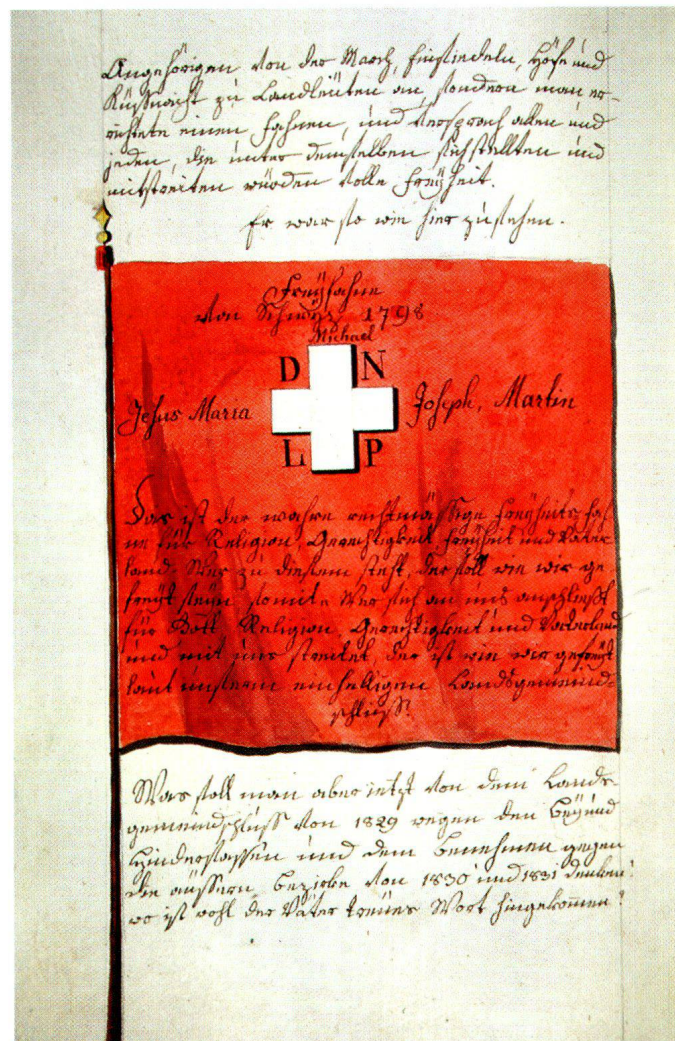 Angehörigen von der March, Einsiedeln, Höfe und
Küßnacht zu Landleüten an, sondern man er-
richtete einen Fahnen, und versprach allen und
jeden, die unter demselben sich stellten und
mitstreiten würden volle Freÿheit.
Er war so wie hier zu sehen.
Freÿfahne
von Schwÿz 1798
Michael
D N
Jesus Maria Joseph, Martin
L P
Das ist der wahre rechtmässige Freÿheits fah
ne für Religion Gerechtigkeit Freÿheit und Vater
land. Wer zu diesem steht, der soll wie wir ge
freÿt seÿn somit. Wer sich an uns anschließt
für Gott Religion, Gerechtigkeit und Vaterland
und mit uns streitet, der ist wie wir gefreÿt
laut unserem einhelligen Landsgemeind-
schluß.
Was soll man aber jetzt von dem Lands-
gemeindschluss von 1829 wegen den Beÿ und
Hindersassen und dem Benehmen gegen
die äussern Bezirke von 1830 und 1831 denken!
wo ist wohl der Väter treües Wort hingekommen?